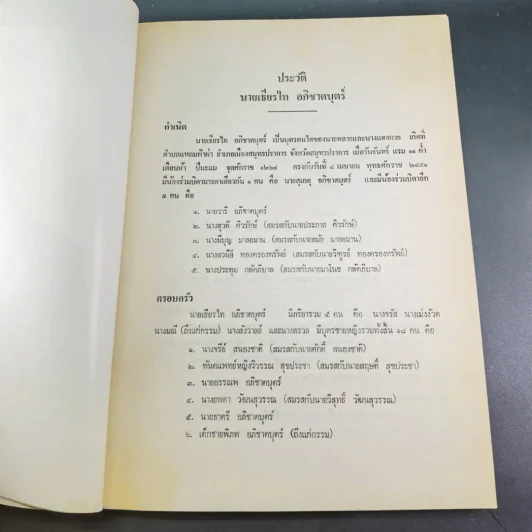 ประวัติ
นายเธียรไท อภิชาตบุตร์
กำเนิด
นายเธียรไท อภิชาตบุตร์ เป็นบุตรคนโตของนายหลายและนางแตงกวย เกิดที่
ตำบลแหลมฟ้าผ่า อำเภอเมืองสมุทรปราการ จังหวัดสมุทรปราการ เมื่อวันจันทร์ แรม ๑๑ ค่ำ
เดือนห้า ปีมะแม จุลศักราช ตรงกับวันที่ เมษายน พุทธศักราช
มีน้องร่วมบิดามารดาเดียวกัน ๑ คน คือ อภิชาตบุตร์ และมีน้องร่วมบิดาอีก
๕ คน คือ
๑. นายวารี อภิชาตบุตร์
๒. นางสุวดี ศิวรักษ์ (สมรสกับนายประภาส ศิวรักษ์)
๓. นางมีบุญ มาลยมาน (สมรสกับนายสมัย มาลยมาน)
๔. นางสวนีย์ ทองครองทรัพย์ (สมรสกับนายวิฑูรย์ ทองครองทรัพย์)
๕. นางประทุม กลัดภิบาล (สมรสกับนายมาโนช กลัดภิบาล)
ครอบครัว
นายเธียรไท อภิชาตบุตร์ มีภริยารวม ๕ คน คือ นางจรัส นางเม่งง้วด
นางมณี (ถึงแก่กรรม) นางสังวาลย์ และนางสรวล มีบุตรชายหญิงรวมทั้งสิ้น ๑๘ คน คือ
๑. นางจรีย์ สนองชาติ (สมรสกับนายศักดิ์ สนองชาติ)
๒. ทันตแพทย์หญิงวิวรรณ สุขประชา (สมรสกับนายสฤษดิ์ สุขประชา)
๓. นายอรรณพ อภิชาตบุตร์
๔. นางยพดา วัฒนสุวรรณ (สมรสกับนายวิสุทธิ์ วัฒนสุวรรณ)
๕. นายธาตรี อภิชาตบุตร์
๖. เด็กชายพิภพ อภิชาตบุตร์ (ถึงแก่กรรม)